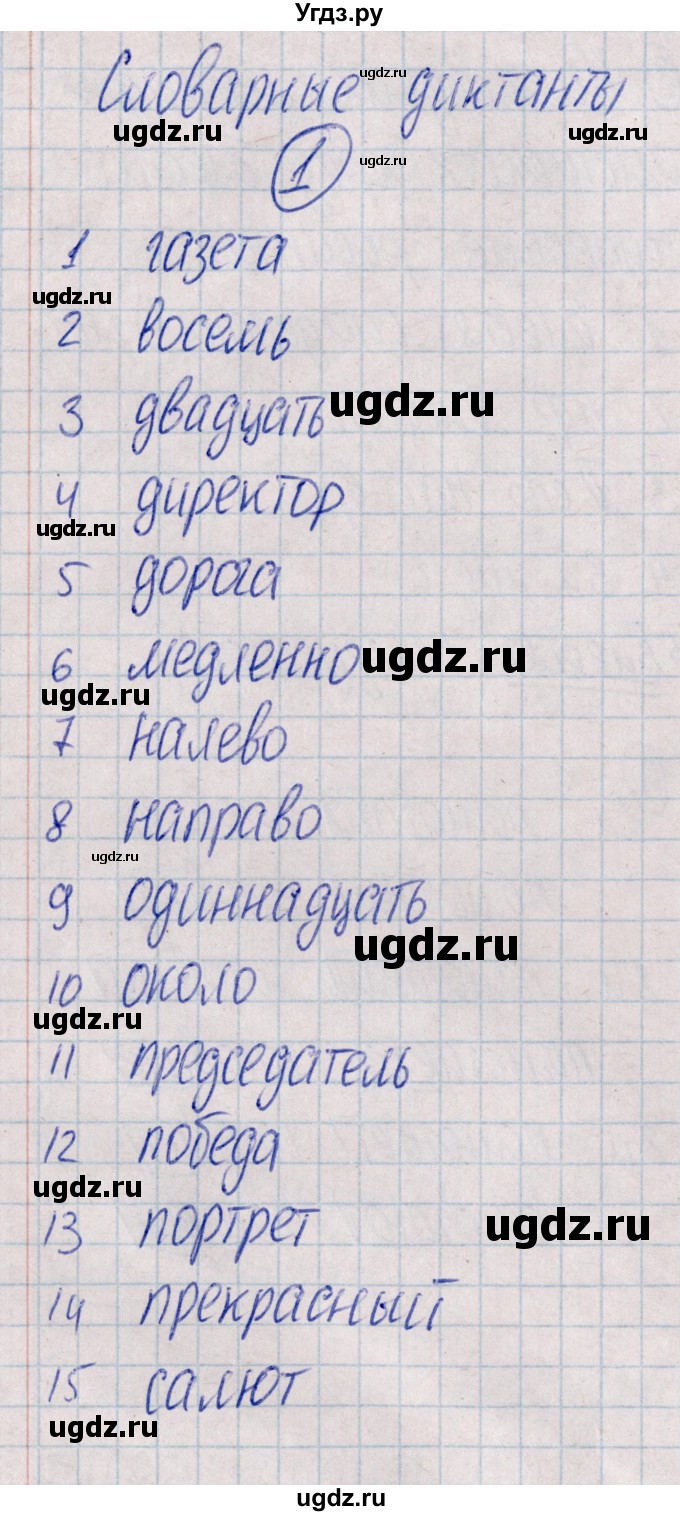 Угдз.ру
Словарные диктанты
ugdz.ru
ugdz.ru
ugdz.ru
1
ugdz.ru
1 газета
ugdz.ru
2 восемь
3 двадцать
ugdz.ru
4 директор
ugdz.ru
5 дорога
6 медленно
ugdz.ru
ugdz.ru
7 налево
8 направо
ugdz.ru
9 одиннадцать
ugdz.ru
10 около
ugdz.ru
11 председатель
12 победа
ugdz.ru
13 портрет
ugdz.ru
14 прекрасный
15 салют
ugdz.ru
ugdz.ru